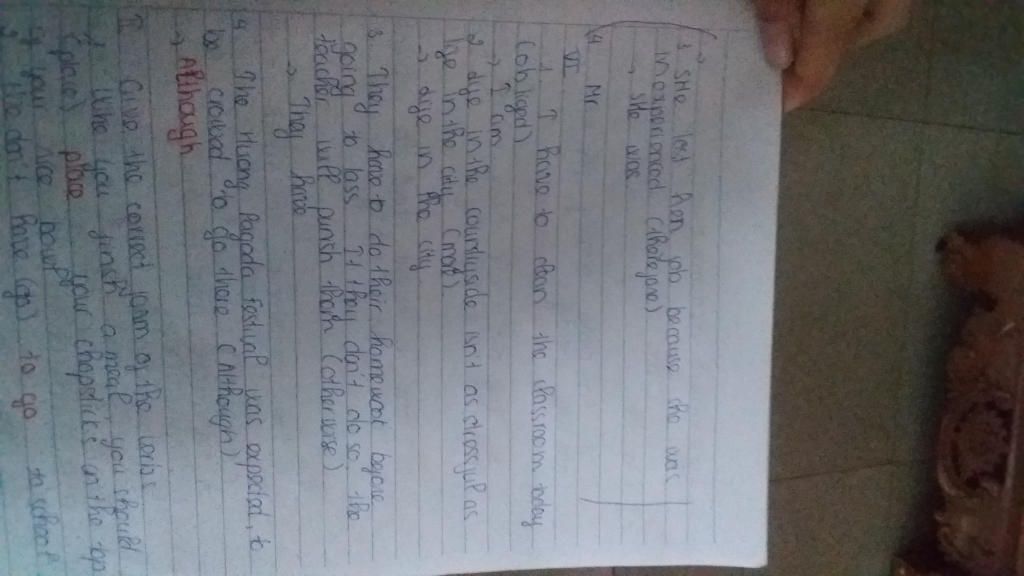 3. She lost her job because she was
inexperienced (therefore)
→ She was
4 Mr
VI
1. I have to clean the classroom today
(obliged)
→ I am
2 life in the countryside isn't as stressful as
life in the city (more)
→ life in the city
3. They have to do their homework before
going to class If they don't do so the
teacher will punish them (otherwise)
→ They have
4 The Huong Pagoda festival was expected, to
be crowed to go there (Although)
→ Although
Give the correct form of the verbs
1. When you finish a meal, you should
(place) place your chopsticks on the top
of your rice bowl
2. We don't have (go) to go to school